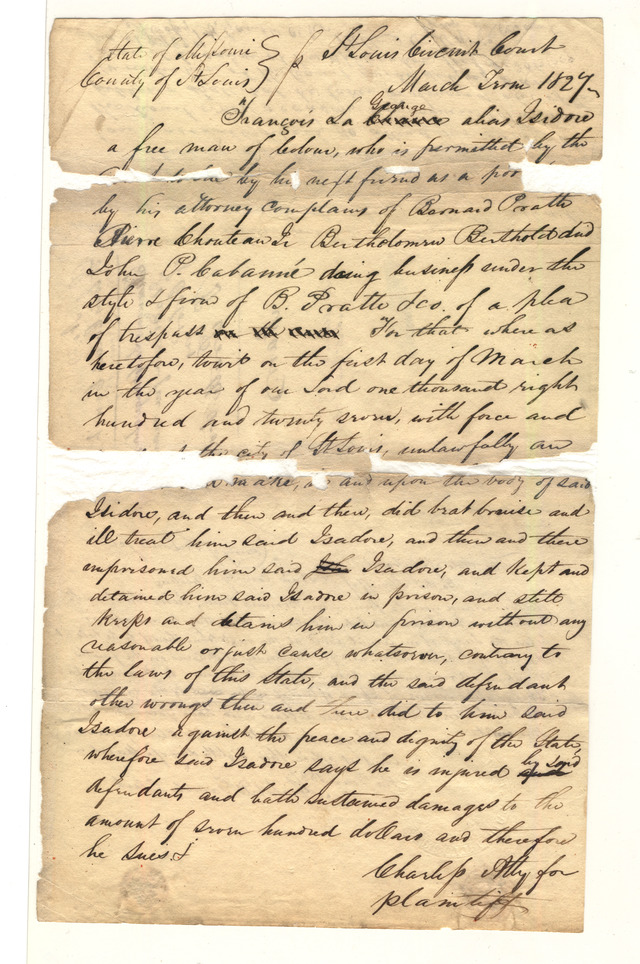 State of Missouri } ss St Louis Circuit Court
County of St Louis }
March Term 1827
Grange
François La Chance alias Isidore
a free man of Colour, who is permitted by the
by his next friend as a
by his attorney complains of Bernard Pratte
Pierre Chouteau Jr Bertholomew Berthold and
John P. Cabanné doing business under the
style & firm of B. Pratte & co. of a plea
of trespass For that where as
heretofore, towit on the first day of March
in the year of our Lord one thousand eight
hundred and twenty seven, with force and
the city of St Louis, unlawfully an
make, in and upon the body of said
Isidore, and then and there, did beat bruise and
ill treat him said Isadore, and then and there
imprisoned him said Isadore, and kept and
detained him said Isadore in prison, and still
keeps and detains him in prison without any
reasonable or just cause whatsoever, contrary to
the laws of this State, and the said defendant
other wrongs then and there did to him said
Isadore against the peace and dignity of the State,
wherefore said Isadore says he is injured by said
defendants and hath sustained damages to the
amount of seven hundred dollars and therefore
he sues &
Charless Atty for
plaintiff